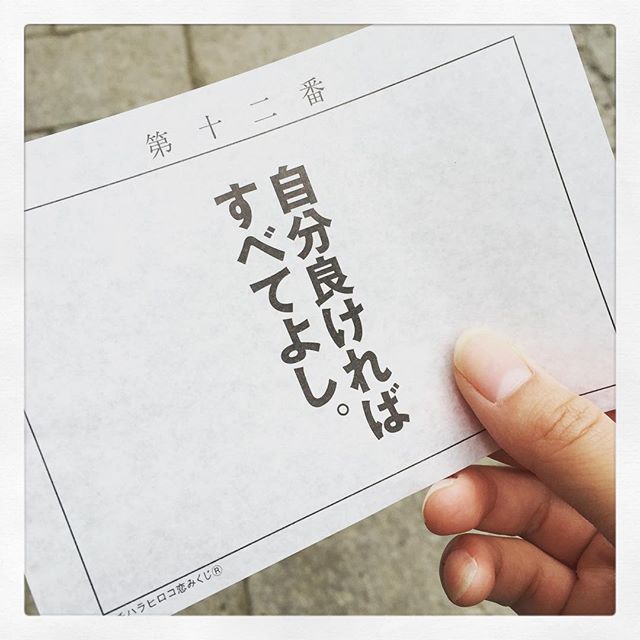 第十二番
自分良ければ
すべてよし。
ハラヒロコ恋みくじ®